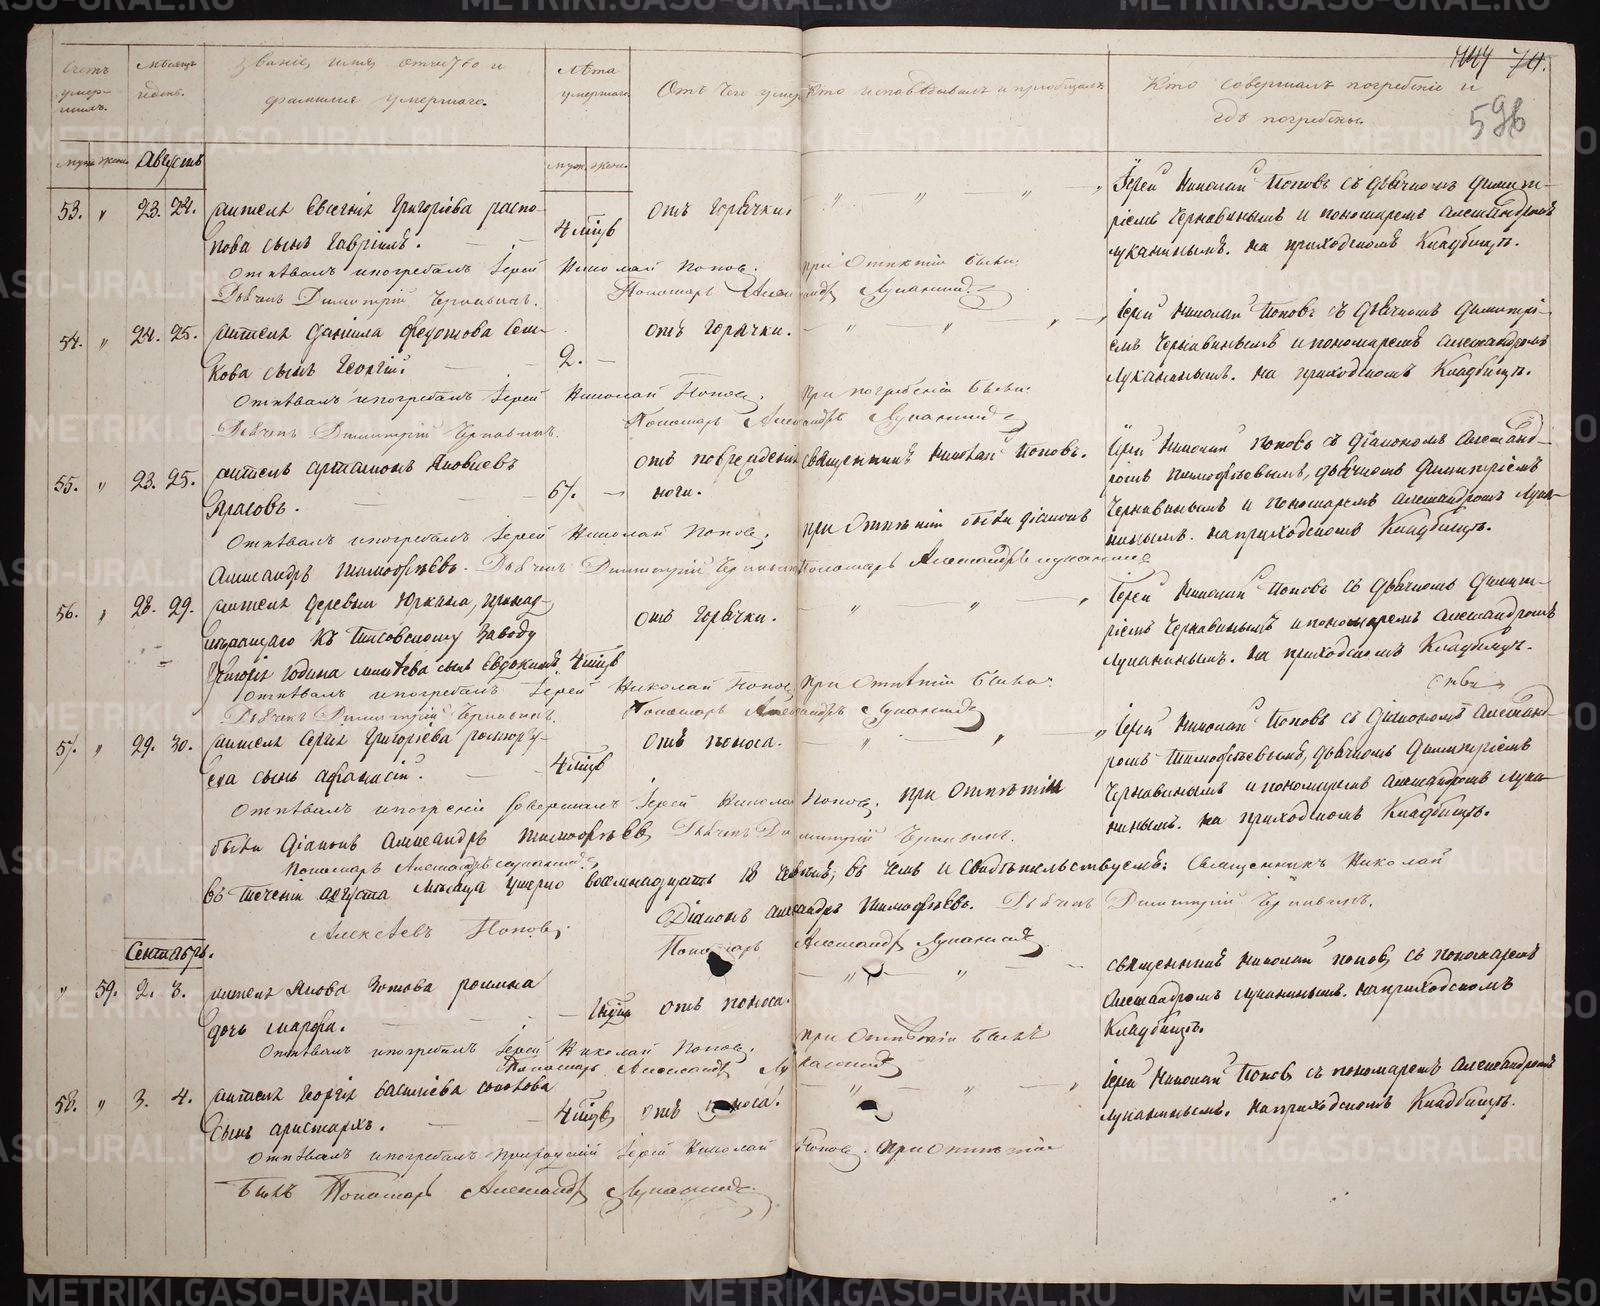 Счетъ умер-шихъ.
Мѣсяцъ и день.
Званіе, имя, отчество и фамилія умершаго.
Лѣта умершаго.
Отъ чего умеръ
Кто исповѣдывалъ и пріобщалъ
Кто совершалъ погребеніе и гдѣ погребены.
70.
596
муж. жен. Августъ
муж. жен.
53. " 23. 24. Григоріева распо-
пова сынъ Гавріилъ. 4 мѣцв отъ горячки. " " " "
Іерей Николай Поповъ съ дьячкомъ Димит-
ріемъ Чернавинымъ и пономаремъ Александромъ
Луканинымъ. на приходскомъ Кладбищѣ.
Отпѣвалъ и погребалъ Іерей Николай Попов. при Отпѣтіи были:
Дьячекъ Димитрій Чернавинъ. Пономарь Александръ Луканинъ
54. " 24. 25. Даніила Федотова
кова сынъ Георгій. 2. — отъ горячки. " " "
Іерей Николай Поповъ съ дьячкомъ Димитрі-
емъ Чернавинымъ и пономаремъ Александромъ
Луканинымъ. на приходскомъ Кладбищѣ.
Отпѣвалъ и погребалъ Іерей Николай Попов. при погребеніи были:
Дьячекъ Димитрій Чернавинъ. Пономарь Александръ Луканинъ
55. " 23. 25. Артамонъ Яковлевъ
67. — отъ поврежденія ноги.
священникъ Николай Поповъ.
Іерей Николай Поповъ съ діакономъ Александ-
ромъ Тимофѣевымъ, дьячкомъ Димитріемъ
Чернавинымъ и пономаремъ Александромъ Лука-
нинымъ. на приходскомъ Кладбищѣ.
Отпѣвалъ и погребалъ Іерей Николай Попов, при Отпѣтіи были діаконъ
Александръ Тимофѣевъ. Дьячекъ Димитрій Чернавинъ Пономарь Александръ Луканинъ
56. " 28. 29. деревни принад-
лежащаго къ заводу
сынъ Евдокимъ 4 мѣцв отъ горячки. " " "
Іерей Николай Поповъ съ дьячкомъ Димит-
ріемъ Чернавинымъ и пономаремъ Александромъ
Луканинымъ. на приходскомъ Кладбищѣ.
Отпѣвалъ и погребалъ Іерей Николай Попов при Отпѣтіи были:
Дьячекъ Димитрій Чернавинъ. Пономарь Александръ Луканинъ
57. " 29. 30. Сергія Григоріева
ева сынъ Афанасій. 4 мѣцв отъ поноса. " " "
Іерей Николай Поповъ съ діакономъ Александ-
ромъ Тимофѣевымъ, дьячкомъ Димитріемъ
Чернавинымъ и пономаремъ Александромъ Лука-
нинымъ. на приходскомъ Кладбищѣ.
Отпѣвалъ и совершалъ Іерей Николай Попов. при Отпѣтіи
были діаконъ Александръ Тимофѣевъ, Дьячекъ Димитрій Чернавинъ.
Пономарь Александръ Луканинъ
въ теченіи августа мѣсяца умерло восемнадцать 18 человѣкъ; въ чемъ и свидѣтельствуемъ: Священникъ Николай
Алексѣевъ Попов. Діаконъ Александръ Тимофѣевъ. Дьячекъ Димитрій Чернавинъ.
Пономарь Александръ Луканинъ
Сентябрь.
" 59. 2. 3. Якова Зотова
дочь Марфа. отъ поноса. " "
священникъ Николай Попов, съ пономаремъ
Александромъ Луканинымъ. на приходскомъ
Кладбищѣ.
Отпѣвалъ и погребалъ Іерей Николай Попов. при Отпѣтіи былъ
Пономарь Александръ Луканинъ
58. " 3. 4. Георгія Василіева
сынъ Аристархъ. 4 мѣцв отъ поноса. " " "
Іерей Николай Попов, съ пономаремъ Александромъ
Луканинымъ. на приходскомъ Кладбищѣ.
Отпѣвалъ и погребалъ Іерей Николай Попов. при Отпѣтіи
былъ Пономарь Александръ Луканинъ.
METRIKI.GASO-URAL.RU